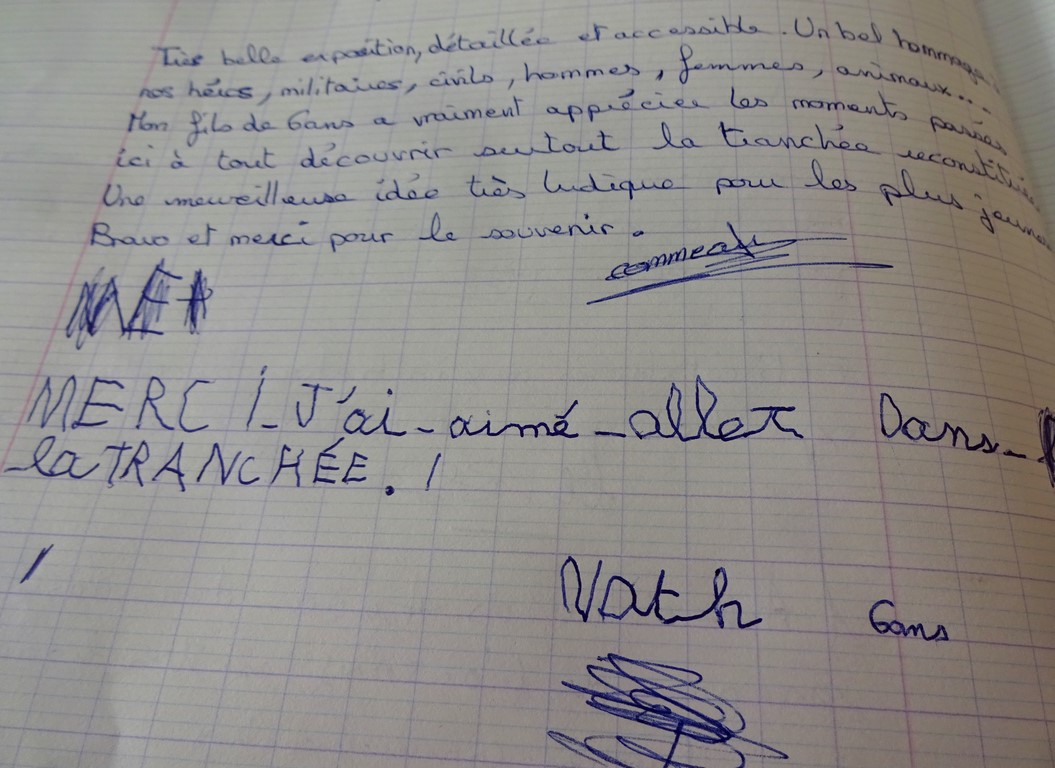 Très belle exposition, détaillée et accessible. Un bel hommage
nos héros, militaires, civils, hommes, femmes, animaux...
Mon fils de 6ans a vraiment appréciée les moments passés
ici à tout découvrir surtout la tranchée reconstituée
Une merveilleuse idée très ludique pour les plus jeunes
Bravo et merci pour le souvenir.
MERCI J'ai-aimé-aller Dans-
la TRANCHÉE. !
6ans